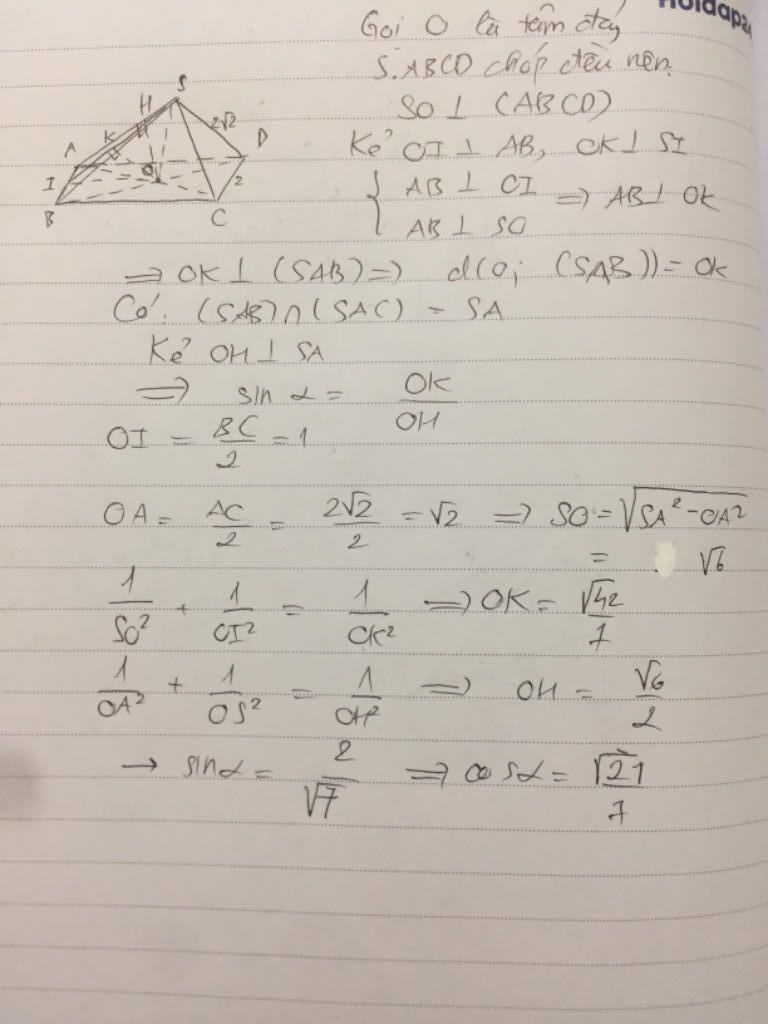 Holdapa
Gọi O là tâm đáy
S.ABCD chóp đều nên
SO ⊥ (ABCD)
Kẻ OI ⊥ AB, OK ⊥ SI
{ AB ⊥ OI
AB ⊥ SO ⇒ AB ⊥ OK
S
H
K
2√2
A
D
O
I
2
B
C
⇒ OK ⊥ (SAB) ⇒ d(O; (SAB)) = OK
Có: (SAB) ∩ (SAC) = SA
Kẻ OH ⊥ SA
⇒ sin α = OK/OH
OI = BC/2 = 1
OA = AC/2 = 2√2/2 = √2 ⇒ SO = √(SA² - OA²)
= √6
1/SO² + 1/OI² = 1/OK² ⇒ OK = √42/7
1/OA² + 1/OS² = 1/OH² ⇒ OH = √6/2
→ sin α = 2/√7 ⇒ cos α = √21/7